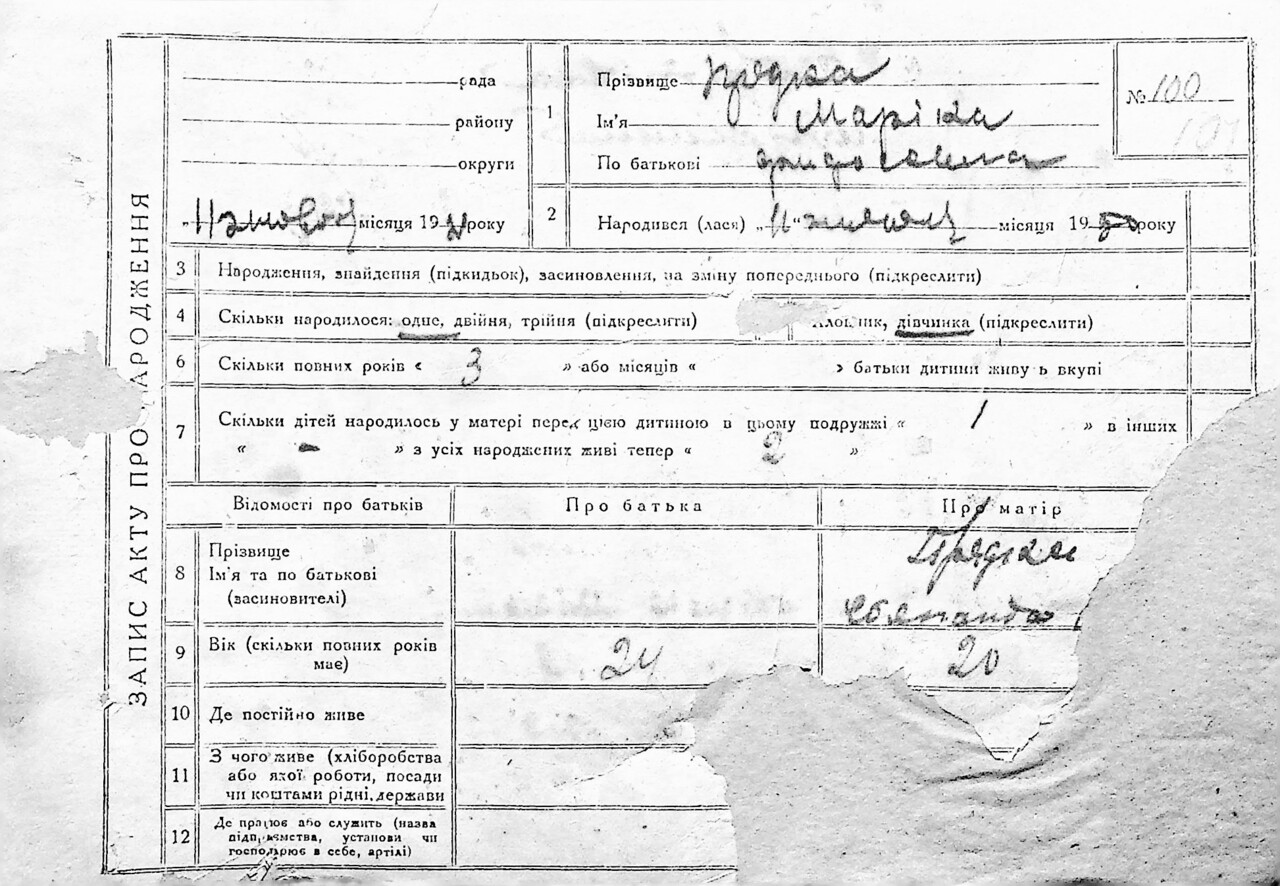 ЗАПИС АКТУ ПРО НАРОДЖЕННЯ
рада
району
округи
місяця 19 року
1 Прізвище
Ім'я Маріка
По батькові
№ 100
2 Народився (лася) „11“ місяця 19 року
3 Народження, знайдення (підкидьок), засиновлення, на зміну попереднього (підкреслити)
4 Скільки народилося: одне, двійня, трійня (підкреслити) дівчинка (підкреслити)
6 Скільки повних років « 3 » або місяців « » батьки дитини живу ь вкупі
7 Скільки дітей народилось у матері перед цією дитиною в цьому подружжі « 1 » в інших
« – » з усіх народжених живі тепер « 2 »
Відомості про батьків Про батька Про матір
8 Прізвище
Ім'я та по батькові
(засиновителі)
9 Вік (скільки повних років має) 24 20
10 Де постійно живе
11 З чого живе (хліборобства
або якої роботи, посади
чи коштами рідні, держави
12 Де працює або служить (назва
підприємства, установи чи
господарює в себе, артілі)